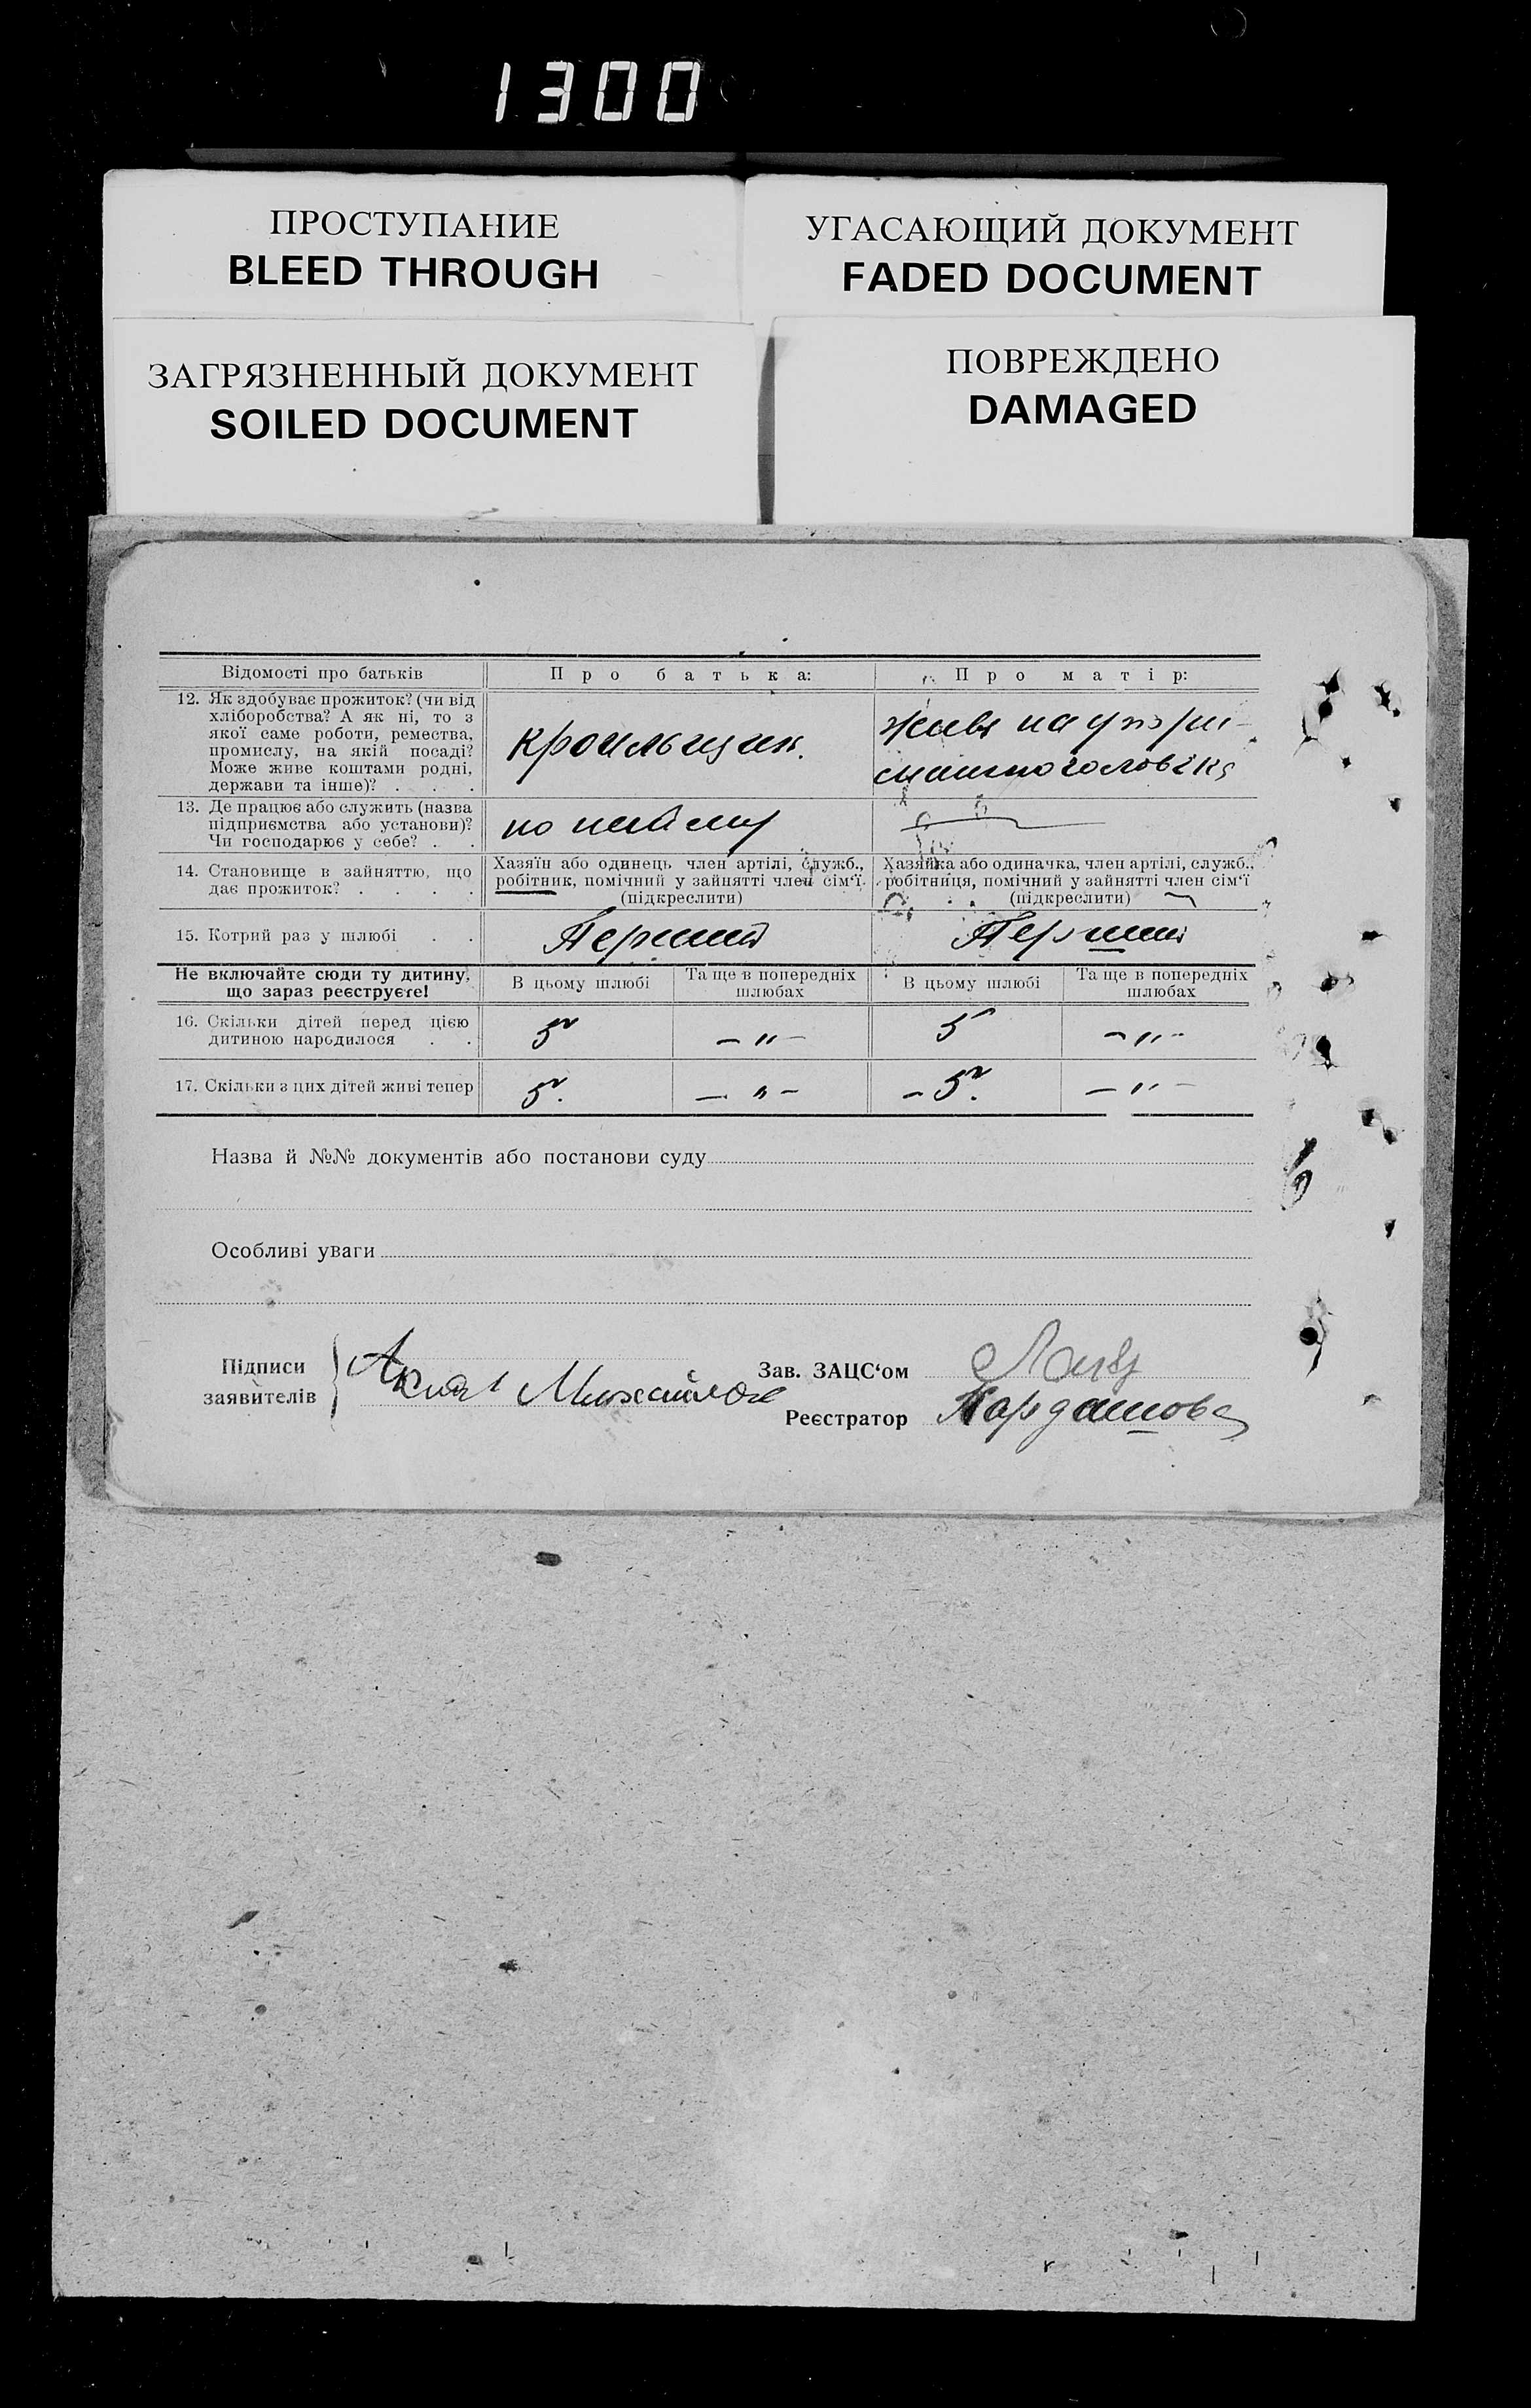 1300
ПРОСТУПАНИЕ
BLEED THROUGH
УГАСАЮЩИЙ ДОКУМЕНТ
FADED DOCUMENT
ЗАГРЯЗНЕННЫЙ ДОКУМЕНТ
SOILED DOCUMENT
ПОВРЕЖДЕНО
DAMAGED
Відомості про батьків
Про батька:
Про матір:
12. Як здобуває прожиток? (чи від
хліборобства? А як ні, то з
якої саме роботи, ремества,
промислу, на якій посаді?
Може живе коштами родні,
держави та інше)? . . .
кроильщик.
живе на утри-
манню чоловіка
13. Де працює або служить (назва
підприємства або установи)?
Чи господарює у себе? . .
по найму
14. Становище в зайняттю, що
дає прожиток? . . . .
Хазяїн або одинець член артілі, служб.,
робітник, помічний у зайнятті член сім‘ї.
(підкреслити)
Хазяйка або одиначка, член артілі, служб.,
робітниця, помічний у зайнятті член сім‘ї
(підкреслити)
15. Котрий раз у шлюбі . .
Перший
Перший
Не включайте сюди ту дитину,
що зараз реєструєте!
В цьому шлюбі
Та ще в попередніх
шлюбах
В цьому шлюбі
Та ще в попередніх
шлюбах
16. Скільки дітей перед цією
дитиною народилося . .
5
— „ —
5
— „ —
17. Скільки з цих дітей живі тепер
5.
— „ —
— 5.
— „ —
Назва й №№ документів або постанови суду
Особливі уваги
Підписи
заявителів
Зав. ЗАЦС‘ом
Реєстратор
Кардашова